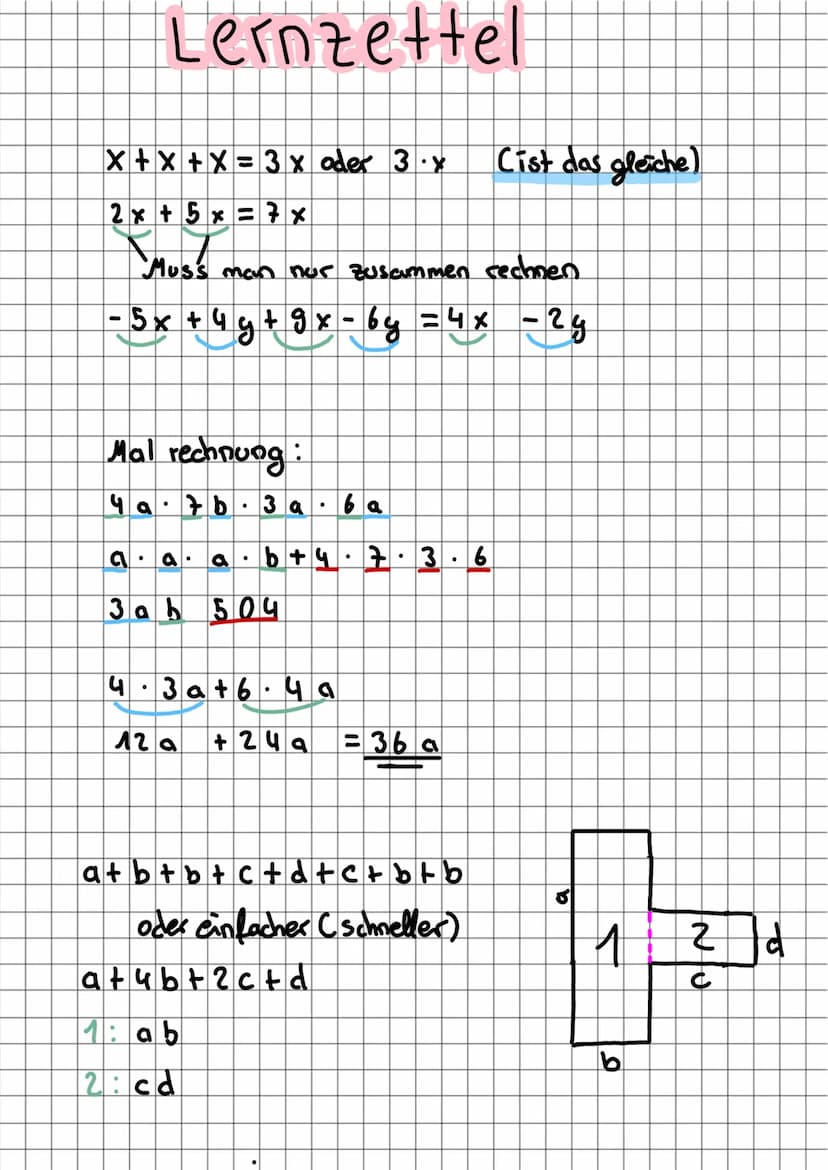 Lernzettel
x + x + x = 3x oder 3 · x (ist das gleiche)
2x + 5x = 7x
Muss man nur zusammen rechnen
- 5x + 4y + 9x - 6y = 4x - 2y
Mal rechnung:
4a · 7b · 3a · 6a
a · a · a · b + 4 · 7 · 3 · 6
3ab 504
4 · 3a + 6 · 4a
12a + 24a = 36a
a + b + b + c + d + c + b + b
oder einfacher (schneller)
a + 4b + 2c + d
1: ab
2: cd
a
1 2 d
c
b